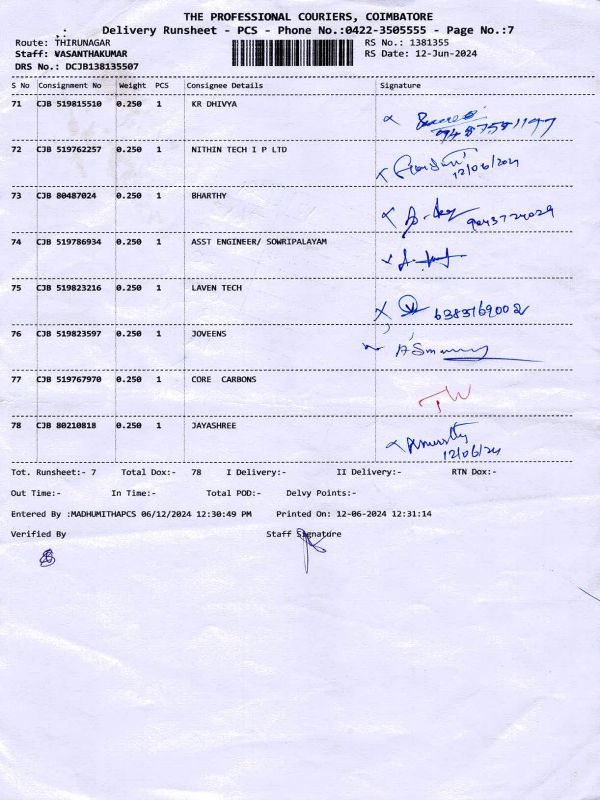 THE PROFESSIONAL COURIERS, COIMBATORE
Delivery Runsheet - PCS - Phone No.:0422-3505555 - Page No.:7
Route: THIRUNAGAR RS No.: 1381355
Staff: VASANTHAKUMAR RS Date: 12-Jun-2024
DRS No.: DCJB138135507
S No Consignment No Weight PCS Consignee Details Signature
71 CJB 519815510 0.250 1 KR DHIVYA
72 CJB 519762257 0.250 1 NITHIN TECH I P LTD
12/06/24
73 CJB 80487024 0.250 1 BHARTHY
9043724029
74 CJB 519786934 0.250 1 ASST ENGINEER/ SOWRIPALAYAM
75 CJB 519823216 0.250 1 LAVEN TECH
6383169002
76 CJB 519823597 0.250 1 JOVEENS
77 CJB 519767970 0.250 1 CORE CARBONS
78 CJB 80210818 0.250 1 JAYASHREE
12/06/24
Tot. Runsheet:- 7 Total Dox:- 78 I Delivery:- II Delivery:- RTN Dox:-
Out Time:- In Time:- Total POD:- Delvy Points:-
Entered By :MADHUMITHAPCS 06/12/2024 12:30:49 PM Printed On: 12-06-2024 12:31:14
Verified By Staff Signature